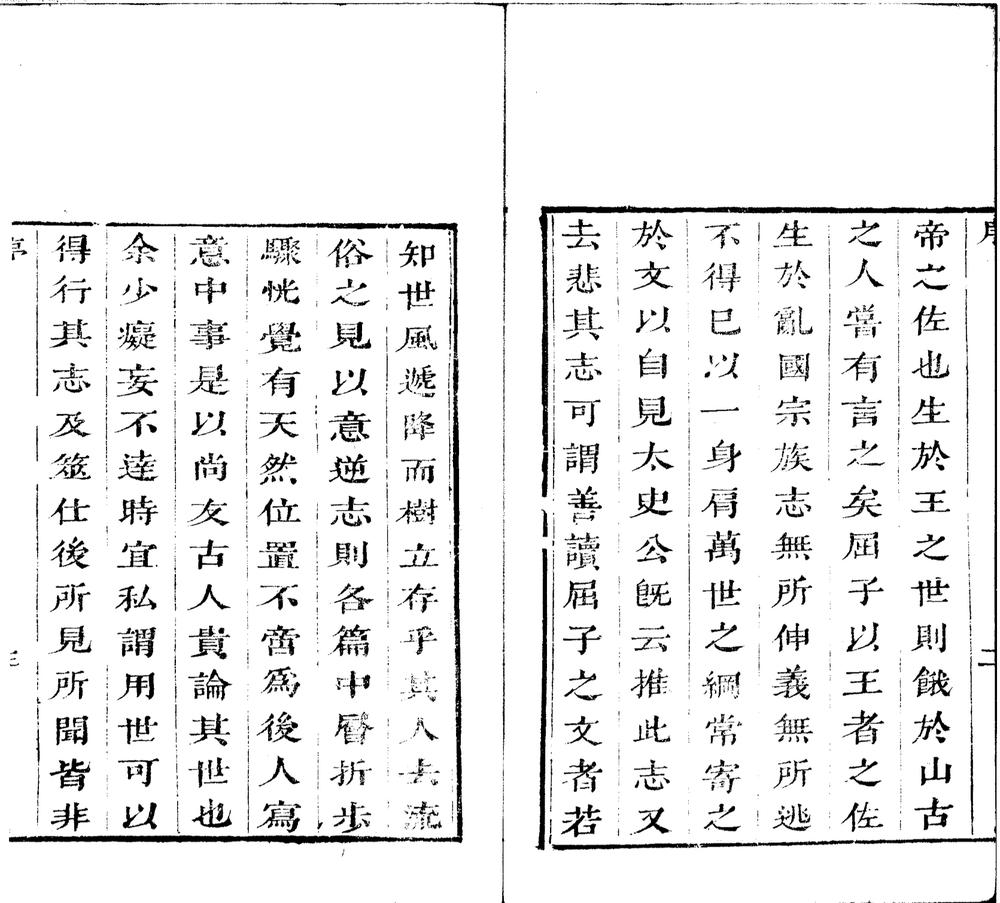 序
二
帝之佐也生於王之世則餓於山古
之人嘗有言之矣屈子以王者之佐
生於亂國宗族志無所伸義無所逃
不得已以一身肩萬世之綱常寄之
於文以自見太史公旣云推此志又
去悲其志可謂善讀屈子之文者若
知世風遞降而樹立存乎其人去流
俗之見以意逆志則各篇中層折步
驟恍覺有天然位置不啻爲後人寫
意中事是以尚友古人貴論其世也
余少癡妄不達時宜私謂用世可以
得行其志及筮仕後所見所聞皆非
序
三